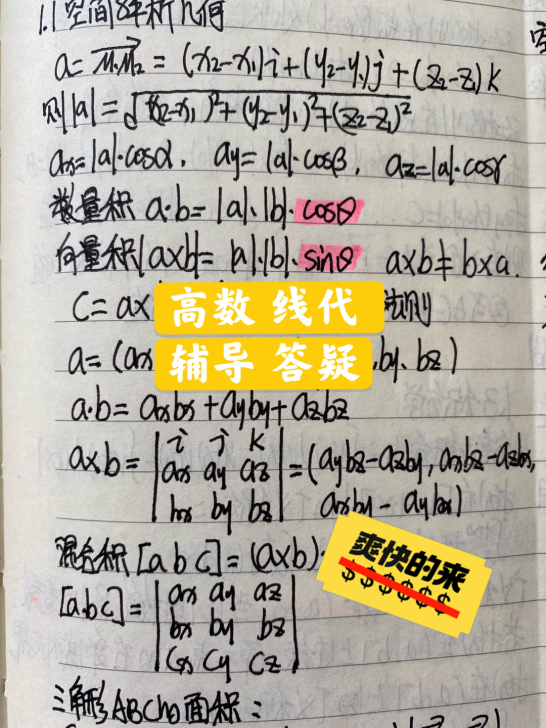 1.1 空间解析几何
a = M₁M₂ = (x₂-x₁)i+(y₂-y₁)j+(z₂-z₁)k
则|a|=√(x₂-x₁)²+(y₂-y₁)²+(z₂-z₁)²
ax=|a|·cosα, ay=|a|·cosβ, az=|a|·cosγ
数量积 a·b=|a|·|b|·cosθ
向量积|a×b|=|a|·|b|·sinθ a×b≠b×a.
C=ax 法则
高数 线代
a=(ax by、bz)
辅导 答疑
a·b=axbx+ayby+azbz
a×b=|i j k
ax ay az
bx by bz|=(aybz-azby, axbz-azbx,
axby-aybx)
混合积[a b c]=(a×b)·
爽快的来
$$$$$$
[abc]=|ax ay az
bx by bz
cx cy cz|
三角形ABC的面积: